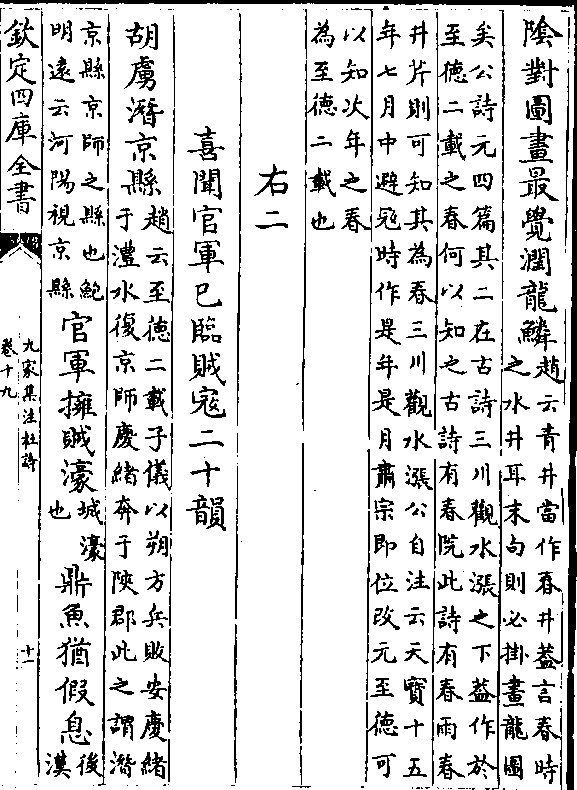 陰對圖畫最覺潤龍鱗
趙云青井當作春井葢言春時
之水井耳末句則必掛畫龍圖
矣公詩元四篇其二在古詩三川觀水漲之下葢作於
至徳二載之春何以知之古詩有春院此詩有春雨春
井芹則可知其為春三川觀水漲公自注云天寳十五
年七月中避冦時作是年是月肅宗即位改元至徳可
以知次年之春
為至徳二載也
右二
喜聞官軍已臨賊寇二十韻
胡虜潛京縣
趙云至徳二載子儀以朔方兵敗安慶緒
于灃水復京師慶緒奔于陜郡此之謂潛
京縣京師之縣也鮑
明遠云河陽視京縣
官軍擁賊濠
城濠
也
鼎魚猶假息
後
漢
欽定四庫全書
九家集注杜詩
卷十九
十一